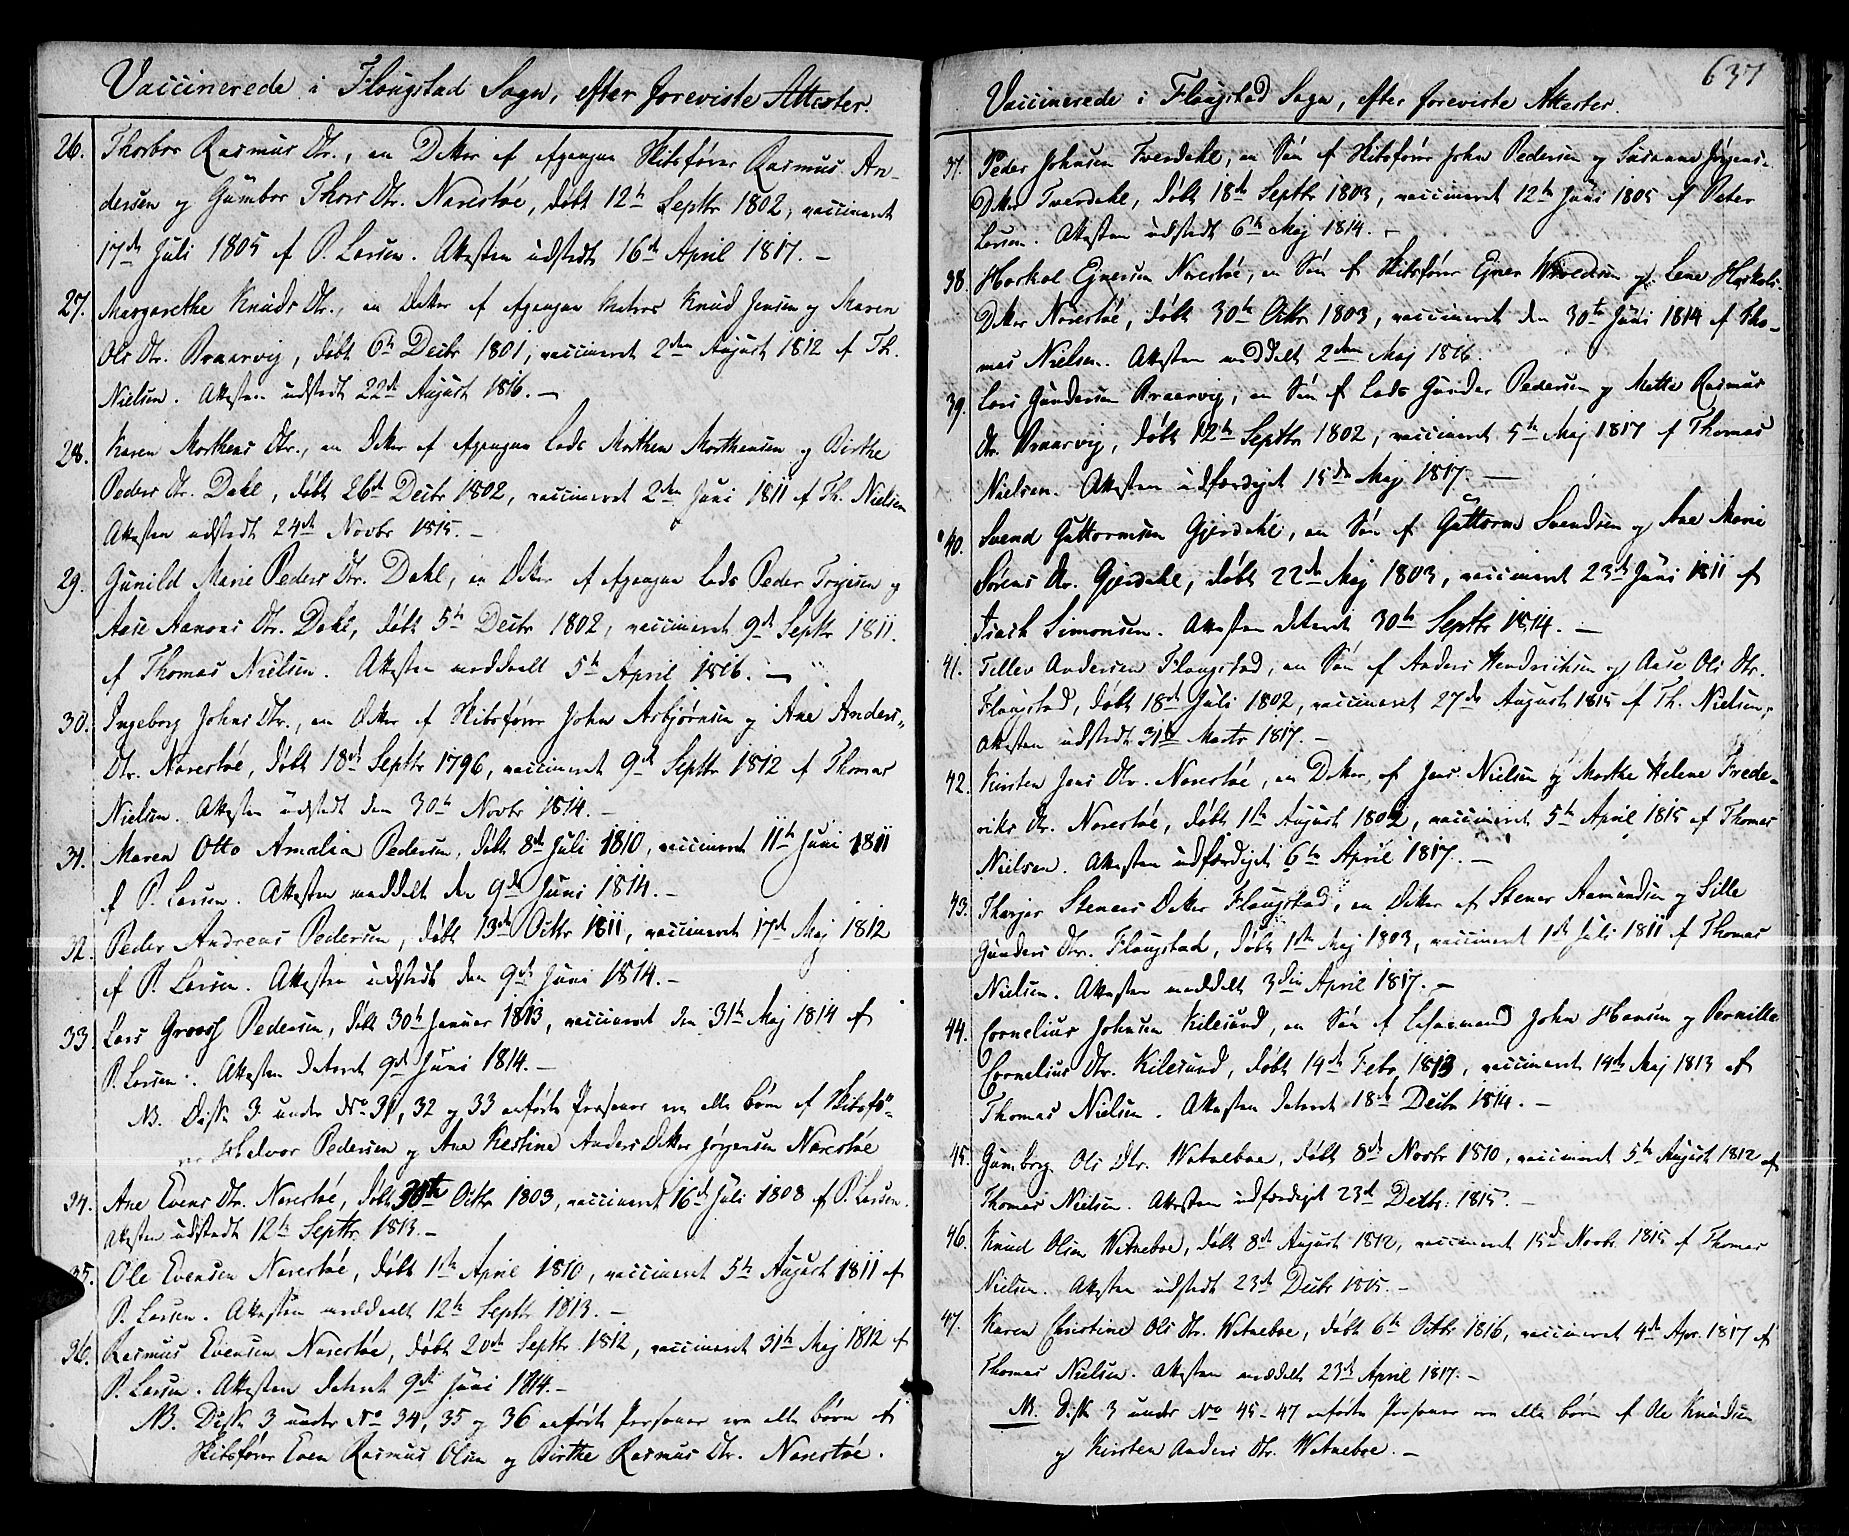 Vaccinerede i Flaugstad Sogn, efter foreviste Attester.
26. Thorbor Rasmus Dtr., en Dotter af afgangne Skibsfører Rasmus An-
dersen og Gumbor Thors Dtr. Narestøe, døbt 12te Septbr 1802, vaccineret
17de Juli 1805 af P. Larsen. Attesten udstedt 16de April 1817. —
27. Margarethe Knuds Dtr., en Dotter af afgangne Matros Knud Jensen og Maren
Ols Dtr. Braarvig, døbt 6te Decbr 1801, vaccineret 2den August 1812 af Th.
Nielsen. Attesten udstedt 22de August 1816. —
28. Karen Morthens Dtr., en Dotter af afgangne Lods Morthen Morthensen og Birthe
Peders Dtr. Dahl, døbt 26de Decbr 1802, vaccineret 2den Juni 1811 af Th. Nielsen
Attesten udstedt 24de Novbr 1815. —
29. Gunild Marie Peders Dtr. Dahl, en Dotter af afgangne Lods Peder Terjesen og
Aase Aanons Dtr. Dahl, døbt 5te Decbr 1802, vaccineret 9de Septbr 1811.
af Thomas Nielsen. Attesten meddeelt 5te April 1816. —
30. Ingeborg Johns Dtr., en Dotter af Skibsfører John Asbjørnsen og Ane Anders-
Dtr. Narestøe, døbt 18de Septbr 1796, vaccineret 9de Septbr 1812 af Thomas
Nielsen. Attesten udstedt den 30te Novbr 1814. —
31. Maren Otto Amalia Pedersen, døbt 8de Juli 1810, vaccineret 11te Juni 1811
af P. Larsen. Attesten meddelt den 9de Juni 1814. —
32. Peder Andreas Pedersen, døbt 13de Octbr 1811, vaccineret 17de Maj 1812
af P. Larsen. Attesten udstedt den 9de Juni 1814. —
33. Lars Groos Pedersen, døbt 30te Januar 1813, vaccineret den 31te Maj 1814 af
P. Larsen. Attesten dateret 9de Juni 1814. —
NB. Disse 3 under No 31, 32 og 33 anførte Personer ere alle børn af Skibsfø-
rer Halvor Pedersen og Ane Kestine Anders Dotter Jørgensen Narestøe
34. Ane Evens Dtr. Narestøe, døbt 30te Octbr 1803, vaccineret 16de Juli 1808 af P. Larsen.
Attesten udstedt 12te Septbr 1813. —
35. Ole Evensen Narestøe, døbt 1ste April 1810, vaccineret 5te August 1811 af
P. Larsen. Attesten meddeelt 12te Septbr 1813. —
36. Rasmus Evensen Narestøe, døbt 20de Septbr 1812, vaccineret 31te Maj 1812 af
P. Larsen. Attesten dateret 9de Juni 1814. —
NB. Disse 3 under No 34, 35 og 36 anførte Personer ere alle børn af
Skibsfører Even Rasmus Olsen og Birthe Rasmus Dtr. Narestøe.
637
Vaccinerede i Flaugstad Sogn, efter foreviste Attester.
37. Peder Johnsen Tverdahl, en Søn af Skibsfører John Pedersen og Susanne Jørgens-
Dotter Tverdahl, døbt 18de Septbr 1803, vaccineret 12te Juni 1805 af Peter
Larsen. Attesten udstedt 6te Maj 1814. —
38. Haskol Ejnersen Narestøe, en Søn af Skibsfører Ejner og Lene Haskols-
Dotter Narestøe, døbt 30te Octbr 1803, vaccineret den 30te Juni 1814 af Tho-
mas Nielsen. Attesten meddelt 2den Maj 1816.
39. Lars Gundersen Braarvig, en Søn af Lods Gunder Pedersen og Mette Rasmus
Dtr. Braarvig, døbt 12te Septbr 1802, vaccineret 5te Maj 1817 af Thomas
Nielsen. Attesten udfærdiget 15de Maj 1817. —
40. Svend Guttormsen Gjerdahl, en Søn af Guttorm Svendsen og Ane Marie
Sørens Dtr. Gjerdahl, døbt 22de Maj 1803, vaccineret 23de Juni 1811 af
Isach Simonsen. Attesten dateret 30te Septbr 1814. —
41. Tellev Andersen Flaugstad, en Søn af Anders Hendrichsen og Aase Ols Dtr.
Flaugstad, døbt 18de Juli 1802, vaccineret 27de August 1815 af Th. Nielsen,
Attesten udstedt 31te Marts 1817. —
42. Kirsten Jens Dtr. Narestøe, en Dotter af Jens Nielsen og Marthe Helene Frede-
riks Dtr. Narestøe, døbt 1ste August 1802, vaccineret 5te April 1815 af Thomas
Nielsen. Attesten udfærdiget 6te April 1817. —
43. Thorjer Steners Dotter Flaugstad, en Dotter af Stener Aamundsen og Sille
Gunders Dtr. Flaugstad, døbt 1ste Maj 1803, vaccineret 1ste Juli 1811 af Thomas
Nielsen. Attesten meddelt 3die April 1817. —
44. Cornelius Johnsen Kilesund, en Søn af John Hansen og Pernille
Cornelius Dtr. Kilesund, døbt 14de Febr. 1813, vaccineret 14de Maj 1813 af
Thomas Nielsen. Attesten dateret 18de Decbr 1814. —
45. Gumborg Ols Dtr. Watneboe, døbt 8de Novbr 1810, vaccineret 5te August 1812 af
Thomas Nielsen. Attesten udfærdiget 23de Decbr. 1815. —
46. Knud Olsen Watneboe, døbt 8de August 1812, vaccineret 15de Novbr. 1815 af Thomas
Nielsen. Attesten udstedt 23de Decbr 1815. —
47. Karen Christine Ols Dtr. Watneboe, døbt 6te Octbr 1816, vaccineret 4de Apr. 1817 af
Thomas Nielsen. Attesten meddelt 23de April 1817. —
NB. Disse 3 under No 45-47 anførte Personer ere alle børn af Ole Knudsen
og Kirsten Anders Dtr. Watneboe. —